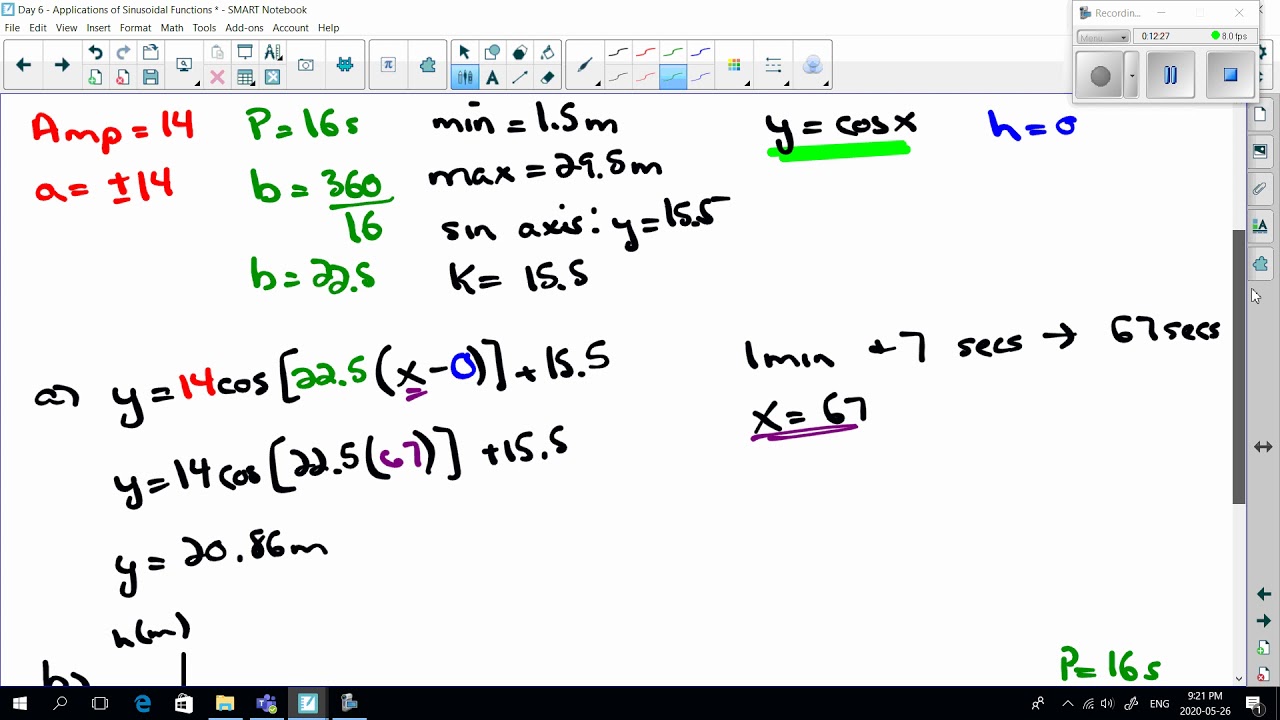 Day 6 - Applications of Sinusoidal Functions * - SMART Notebook
Recordin...
File Edit View Insert Format Math Tools Add-ons Account Help
Menu
0:12:27
8.0 fps
Amp = 14
P = 16s
min = 1.5m
y = cosx
h = 0
a = ±14
b = 360
16
max = 29.5m
sin axis: y = 15.5
b = 22.5
K = 15.5
1min + 7 secs → 67secs
a) y = 14cos[22.5(x-0)] + 15.5
x = 67
y = 14cos[22.5(67)] + 15.5
y = 20.86m
h(m)
b)
P = 16s
ENG
9:21 PM
2020-05-26
1